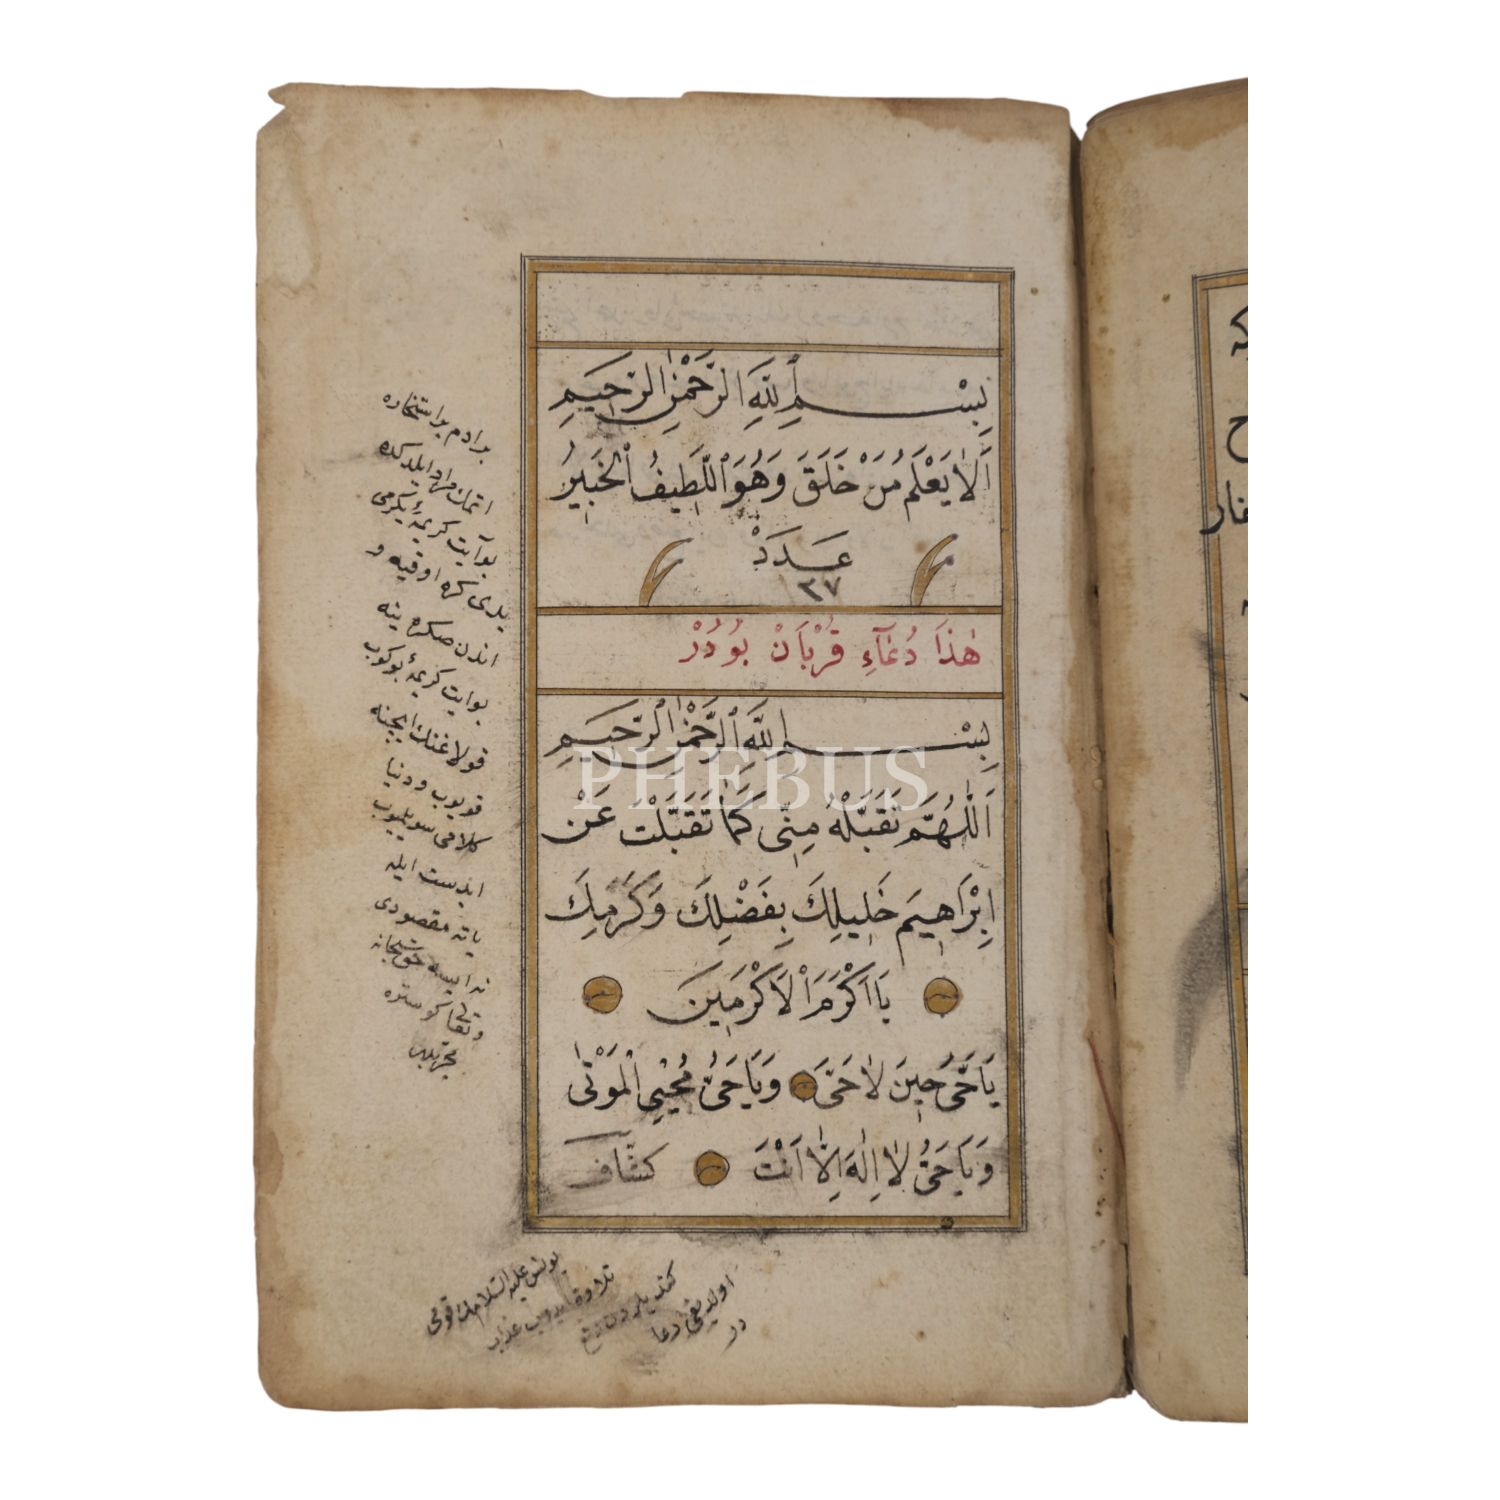 بِسْمِ اللّٰهِ الرَّحْمٰنِ الرَّحِيمِ
اَلَا يَعْلَمُ مَنْ خَلَقَ وَهُوَ اللَّطِيفُ الْخَبِيرُ
عَدَدْ
٣٧
هٰذَا دُعَآءِ قُرْبَانْ بُودُرْ
بِسْمِ اللّٰهِ الرَّحْمٰنِ الرَّحِيمِ
اَللّٰهُمَّ تَقَبَّلْهُ مِنِّى كَمَا تَقَبَّلْتَ عَنْ
اِبْرَاهِيمَ خَلِيلِكَ بِفَضْلِكَ وَكَرَمِكَ
يَا اَكْرَمَ الْاَكْرَمِينَ
يَا حَىُّ حِينَ لَا حَىَّ وَيَا حَىُّ مُحْيِى الْمَوْتٰى
وَيَا حَىُّ لَا اِلٰهَ اِلَّا اَنْتَ كشاف
برادم بر استخاره
اتمك مراد ايلدكده
بو آيت كريمۀ يكرمى
يدى كره اوقيه و
اندن صكره ينه
بوايت كريمۀ
قولاغنك ايچنه
قويوب ودنيا
كلامى سويليوب
ابدست ايله
ياته مقصودى
نه ايسه حق سبحانه
وتعالى كوستره
مجربدر
يونس عليه السلامك قومى
تلاوة ايدوب عذاب
كندیلردن دفع
اولديغى دعا
در
كه
ح
فار
PHEBUS